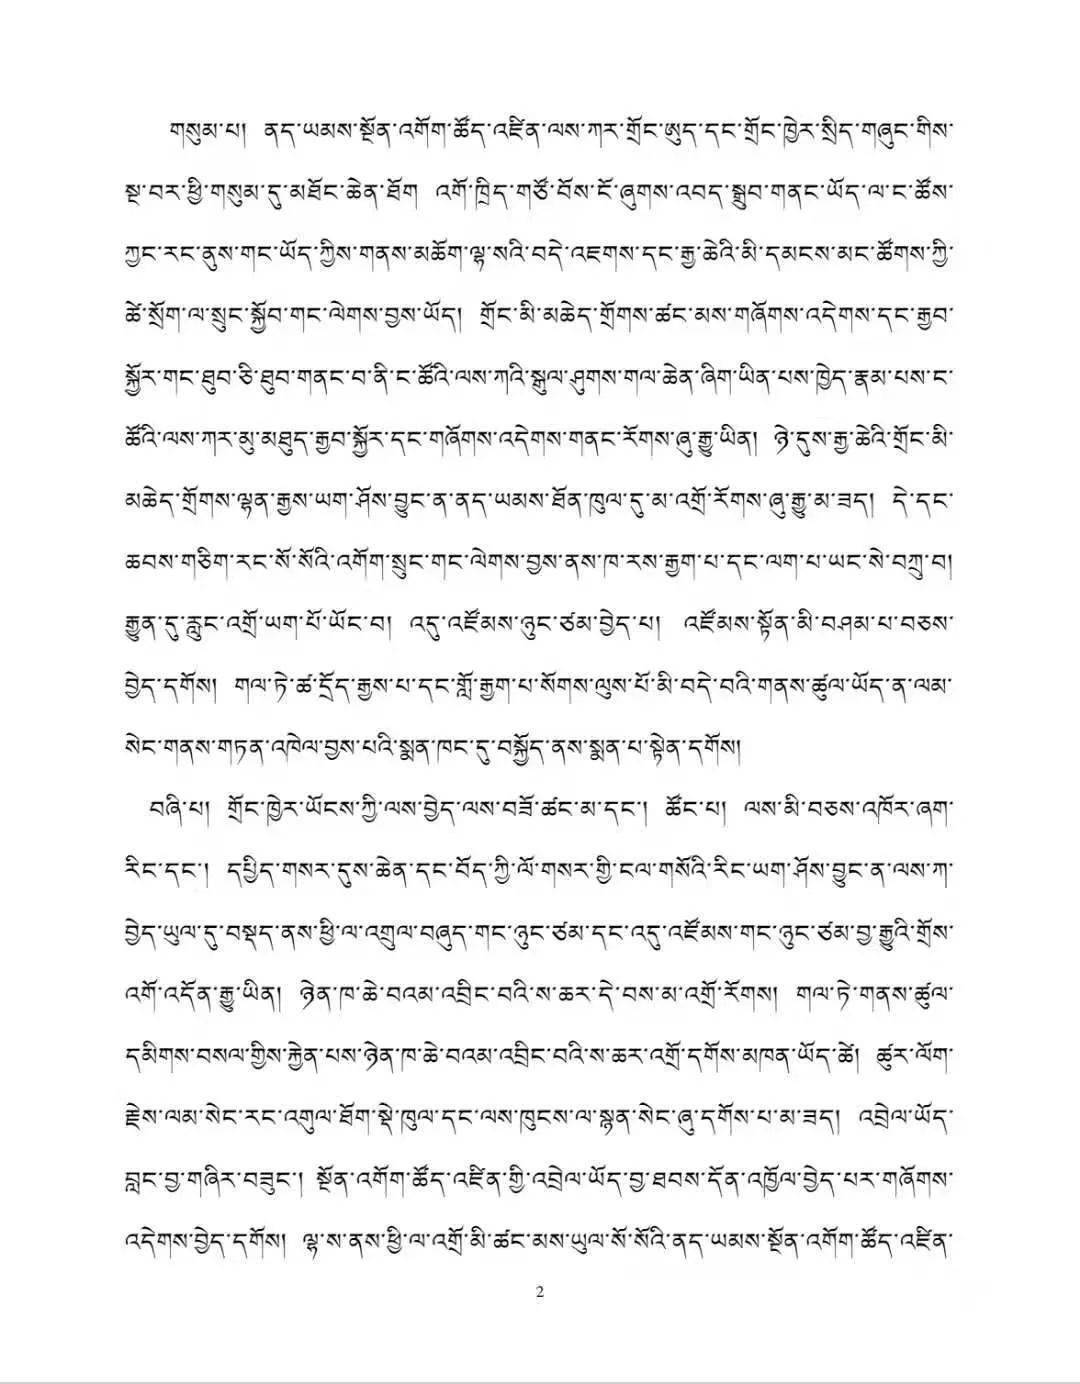 གསུམ་པ། ནད་ཡམས་སྔོན་འགོག་ཚོད་འཛིན་ལས་ཀར་གྲོང་ཨུད་དང་གྲོང་ཁྱེར་སྲིད་གཞུང་གིས་
སྔ་བར་ཕྱི་གསུམ་དུ་མཐོང་ཆེན་ཐོག འགོ་ཁྲིད་གཙོ་བོས་ངོ་ཞུགས་འབད་སྒྲུབ་གནང་ཡོད་ལ་ང་ཚོས་
ཀྱང་རང་ནུས་གང་ཡོད་ཀྱིས་གནས་མཆོག་ལྷ་སའི་བདེ་འཇགས་དང་རྒྱ་ཆེའི་མི་དམངས་མང་ཚོགས་ཀྱི་
ཚེ་སྲོག་ལ་སྲུང་སྐྱོབ་གང་ལེགས་བྱས་ཡོད། གྲོང་མི་མཆེད་གྲོགས་ཚང་མས་གཞོགས་འདེགས་དང་རྒྱབ་
སྐྱོར་གང་ཐུབ་ཅི་ཐུབ་གནང་བ་ནི་ང་ཚོའི་ལས་ཀའི་སྒུལ་ཤུགས་གལ་ཆེན་ཞིག་ཡིན་པས་ཁྱེད་རྣམ་པས་ང་
ཚོའི་ལས་ཀར་མུ་མཐུད་རྒྱབ་སྐྱོར་དང་གཞོགས་འདེགས་གནང་རོགས་ཞུ་རྒྱུ་ཡིན། ཉེ་དུས་རྒྱ་ཆེའི་གྲོང་མི་
མཆེད་གྲོགས་ལྷན་རྒྱས་ཡག་ཤོས་བྱུང་ན་ནད་ཡམས་ཐོན་ཁུལ་དུ་མ་འགྲོ་རོགས་ཞུ་རྒྱུ་མ་ཟད། དེ་དང་
ཆབས་གཅིག་རང་སོ་སོའི་འགོག་སྲུང་གང་ལེགས་བྱས་ནས་ཁ་རས་རྒྱག་པ་དང་ལག་པ་ཡང་སེ་བཀྲུ་བ།
རྒྱུན་དུ་རླུང་འགྲོ་ཡག་པོ་ཡོང་བ། འདུ་འཛོམས་ཉུང་ཙམ་བྱེད་པ། འཛོམས་སྟོན་མི་བཤམ་པ་བཅས་
བྱེད་དགོས། གལ་ཏེ་ཚ་དྲོད་རྒྱས་པ་དང་གློ་རྒྱག་པ་སོགས་ལུས་པོ་མི་བདེ་བའི་གནས་ཚུལ་ཡོད་ན་ལམ་
སེང་གནས་གཏན་འཁེལ་བྱས་པའི་སྨན་ཁང་དུ་བསྐྱོད་ནས་སྨན་པ་སྟེན་དགོས།
བཞི་པ། གྲོང་ཁྱེར་ཡོངས་ཀྱི་ལས་བྱེད་ལས་བཟོ་ཚང་མ་དང་། ཚོང་པ། ལས་མི་བཅས་འཁོར་ཞག་
རིང་དང་། དཔྱིད་གསར་དུས་ཆེན་དང་བོད་ཀྱི་ལོ་གསར་གྱི་ངལ་གསོའི་རིང་ཡག་ཤོས་བྱུང་ན་ལས་ཀ་
བྱེད་ཡུལ་དུ་བསྡད་ནས་ཕྱི་ལ་འགྲུལ་བཞུད་གང་ཉུང་ཙམ་དང་འདུ་འཛོམས་གང་ཉུང་ཙམ་བྱ་རྒྱུའི་གྲོས་
འགོ་འདོན་རྒྱུ་ཡིན། ཉེན་ཁ་ཆེ་བའམ་འབྲིང་བའི་ས་ཆར་དེ་བས་མ་འགྲོ་རོགས། གལ་ཏེ་གནས་ཚུལ་
དམིགས་བསལ་གྱིས་རྐྱེན་པས་ཉེན་ཁ་ཆེ་བའམ་འབྲིང་བའི་ས་ཆར་འགྲོ་དགོས་མཁན་ཡོད་ཚེ། ཚུར་ལོག་
རྗེས་ལམ་སེང་རང་འགུལ་ཐོག་སྡེ་ཁུལ་དང་ལས་ཁུངས་ལ་སྙན་སེང་ཞུ་དགོས་པ་མ་ཟད། འབྲེལ་ཡོད་
བླང་བྱ་གཞིར་བཟུང་། སྔོན་འགོག་ཚོད་འཛིན་གྱི་འབྲེལ་ཡོད་བྱ་ཐབས་དོན་འཁྱོལ་བྱེད་པར་གཞོགས་
འདེགས་བྱེད་དགོས། ལྷ་ས་ནས་ཕྱི་ལ་འགྲོ་མི་ཚང་མས་ཡུལ་སོ་སོའི་ནད་ཡམས་སྔོན་འགོག་ཚོད་འཛིན་
2